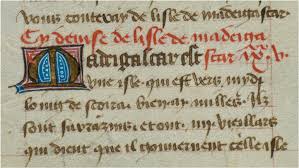 vous conteray de lisle de madeigascar.
Cy deuise de lisle de madeiga
Madeigascar est scar ixxx v.
vne isle qui est vers mydi
loing de scoira bien mil milles. Ilz
sont sarrazins et ont vieillars
qui dient que il gouuernent celle isle